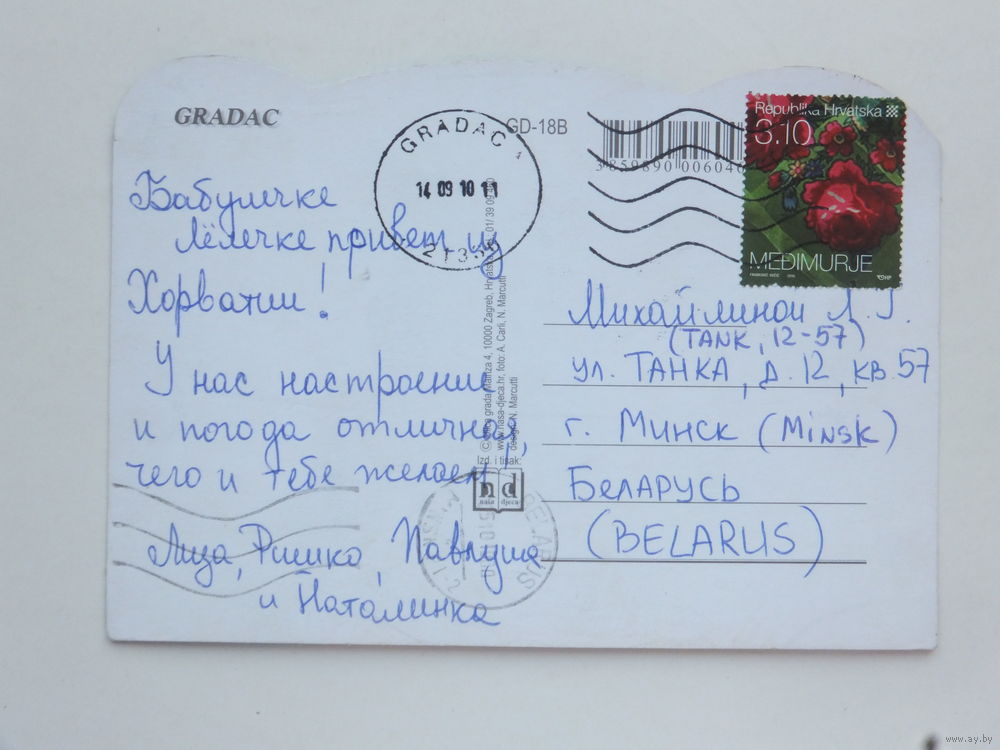 GRADAC
GD-18B
GRADAC
14 09 10 11
21330
3 859890 00604
Republika Hrvatska
3.10
MEĐIMURJE
Бабулечке
Лёлечке привет из
Хорватии!
У нас настроение
и погода отличные,
чего и тебе желаем!
Лиза, Ришко, Павлуша
и Наталинка
Михайлиной Л.Г.
(TANK, 12-57)
ул. ТАНКА, д. 12, кв. 57
г. Минск (Minsk)
БЕЛАРУСЬ
(BELARUS)
10000 Zagreb, Hrvatska
www.nasa-djeca.hr, foto: A. Carli, N. Marcutti
design: N. Marcutti
Izd. i tisak:
nd
naša djeca
BELARUS
www.ay.by